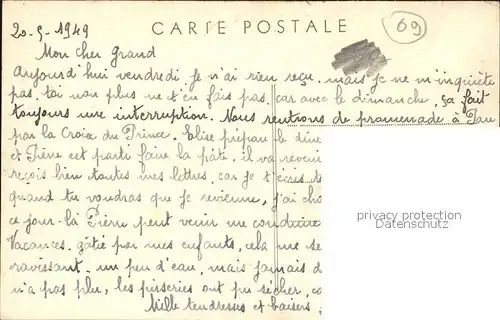 20-5-1949
CARTE POSTALE
69
Mon cher grand
Aujourd'hui vendredi je n'ai rien reçu, mais je ne m'inquiète
pas, toi non plus ne t'en fais pas, car avec le dimanche, ça fait
toujours une interruption. Nous rentrions de promenade à Pau
par la Croix du Prince. Elise prépare le dîne
et Pierre est parti faire la pâte, il va reveni
reçois bien toutes mes lettres, car je t'écris
quand tu voudras que je revienne, j'ai cho
ce jour-là Pierre peut venir me conduire
Vacances, gâtée par mes enfants, cela me se
ravissant. un peu d'eau, mais jamais d
n'a pas plu, les pisseries ont pu sécher, co
Mille tendresses et baisers
privacy protection
Datenschutz